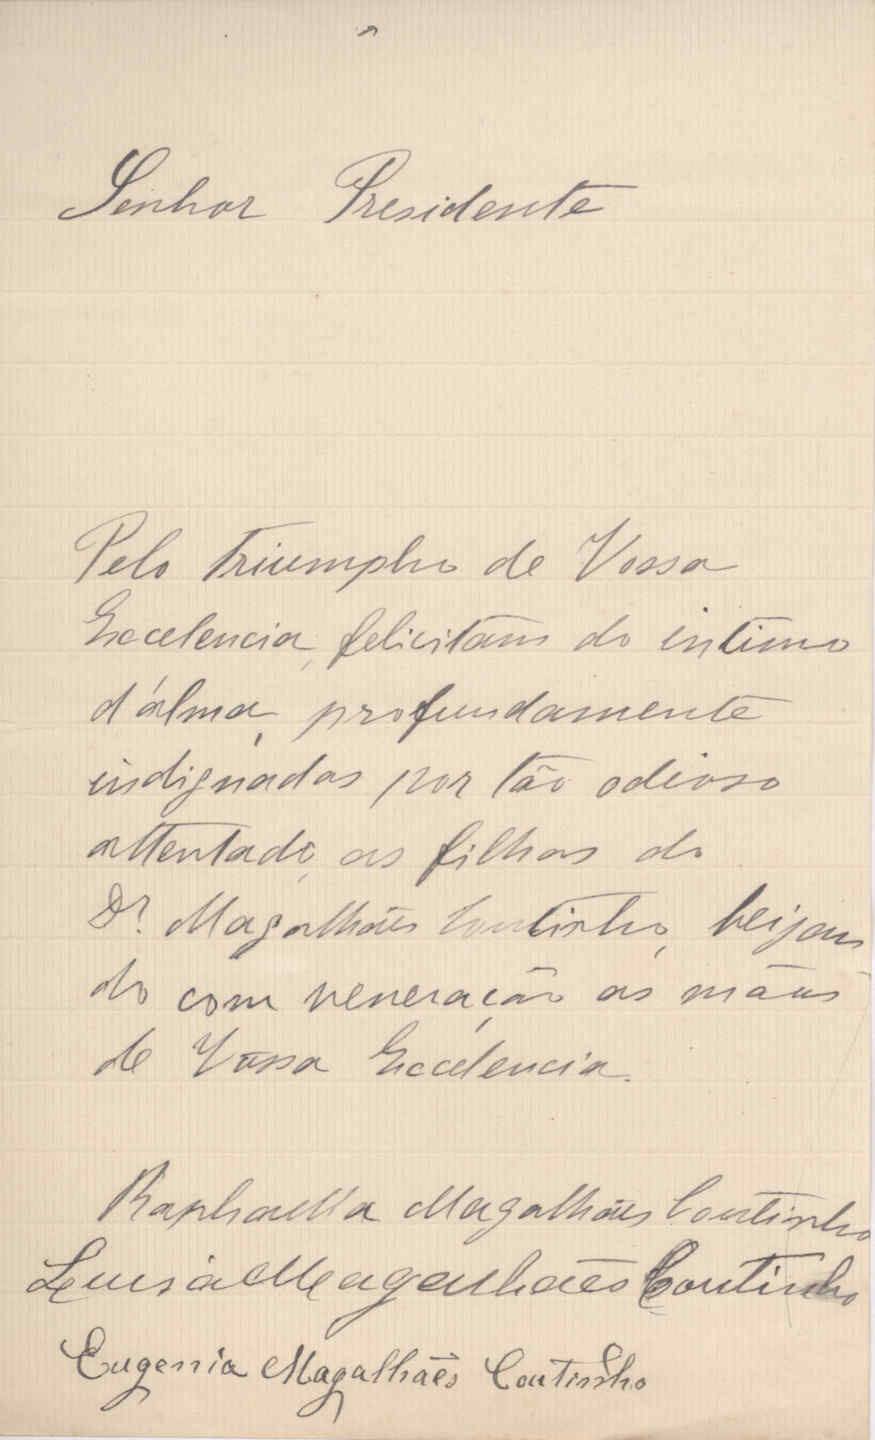 Senhor Presidente
Pelo Triumpho de Vossa
Excelencia, felicitam do intimo
d'alma, profundamente
indignadas por tão odioso
attentado, as filhas do
Dr. Magalhães Coutinho, beijan
do com veneração as mãos
de Vossa Excelencia.
Raphaella Magalhães Coutinho
Luisa Magalhães Coutinho
Eugenia Magalhães Coutinho